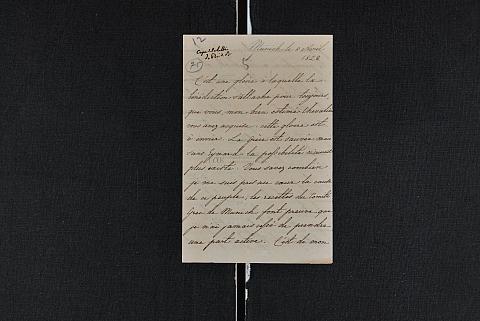 12
Munich le 8 Avril
1828
5
C'est une gloire à laquelle la
bénédiction s'attache pour toujours
que vous, mon bien estimé Chevalier
vous avez acquise; cette gloire est
à envier. La Grèce est sauvée mais
sans Eynard la possibilité n'aurait
plus existé. Vous savez combien
je me suis pas au coeur la cause
de ce peuple; les recettes du comité
Grec de Munich font preuve que
je n'ai jamais cessé de prendre
une part active. C'est de mon